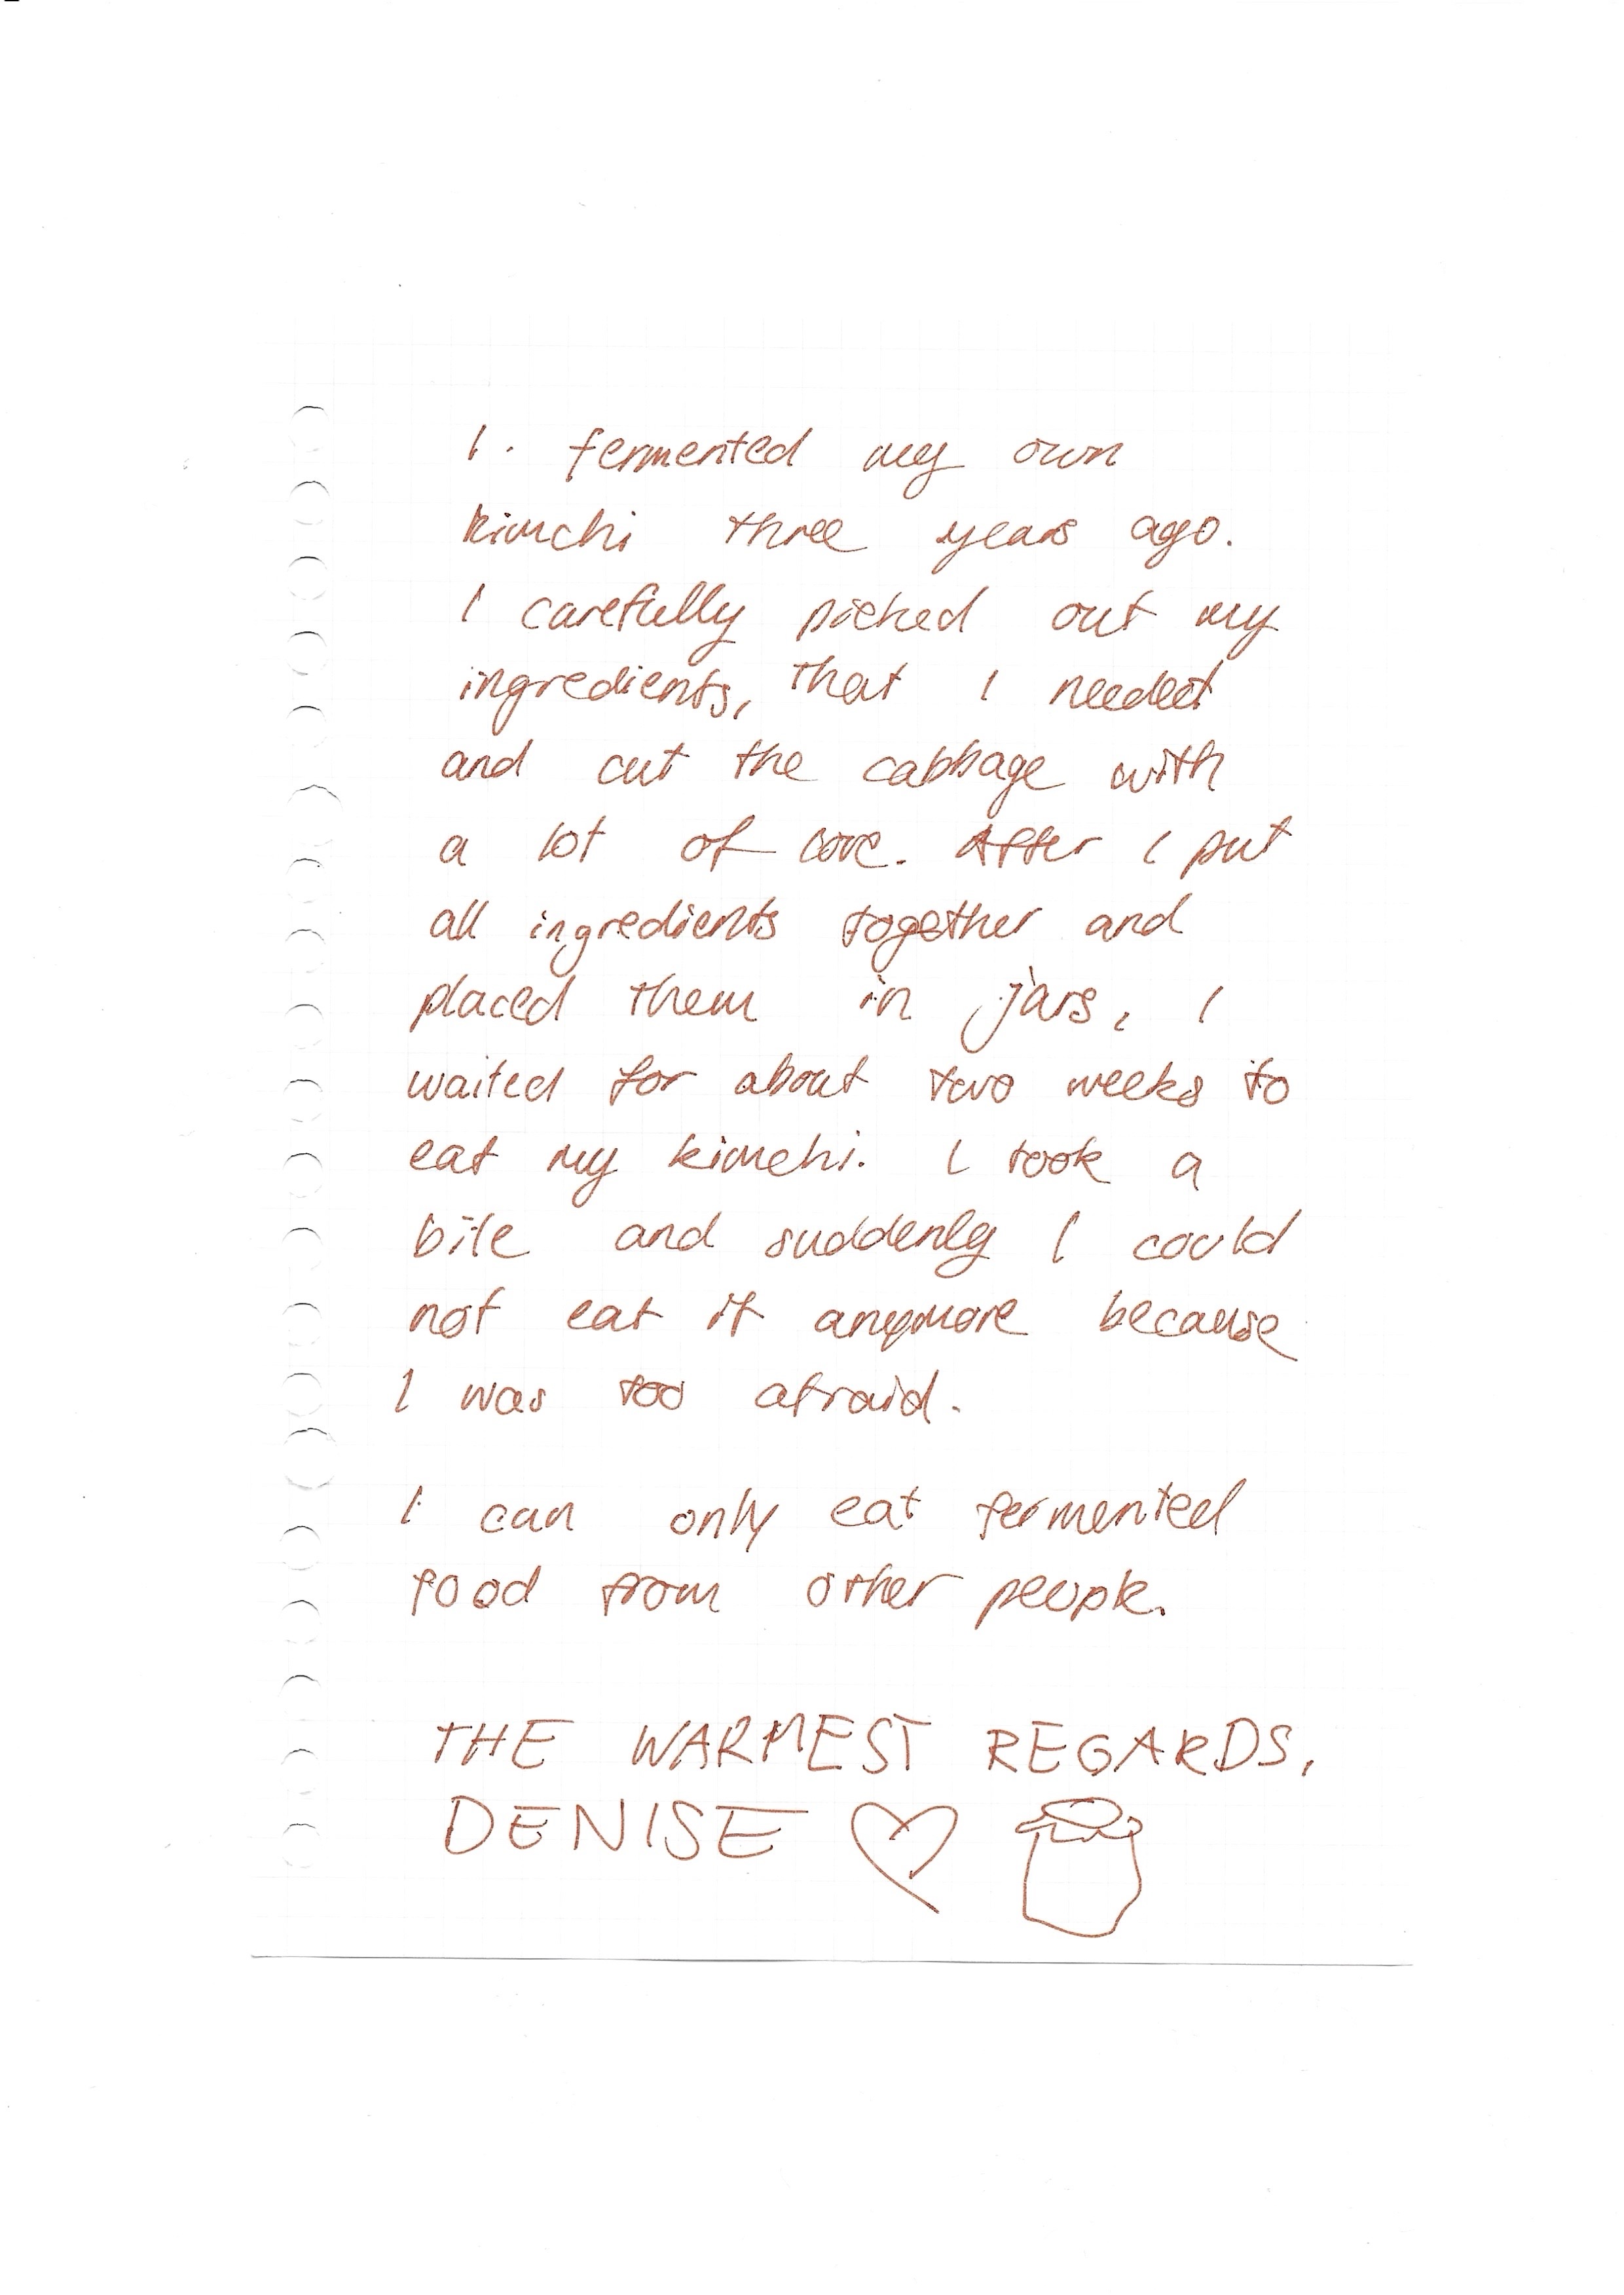 I. fermented my own
kimchi three years ago.
I carefully picked out my
ingredients, that I needed
and cut the cabbage with
a lot of love. After I put
all ingredients together and
placed them in jars, I
waited for about two weeks to
eat my kimchi. I took a
bite and suddenly I could
not eat it anymore because
I was too afraid.
I can only eat fermented
food from other people.
THE WARMEST REGARDS,
DENISE